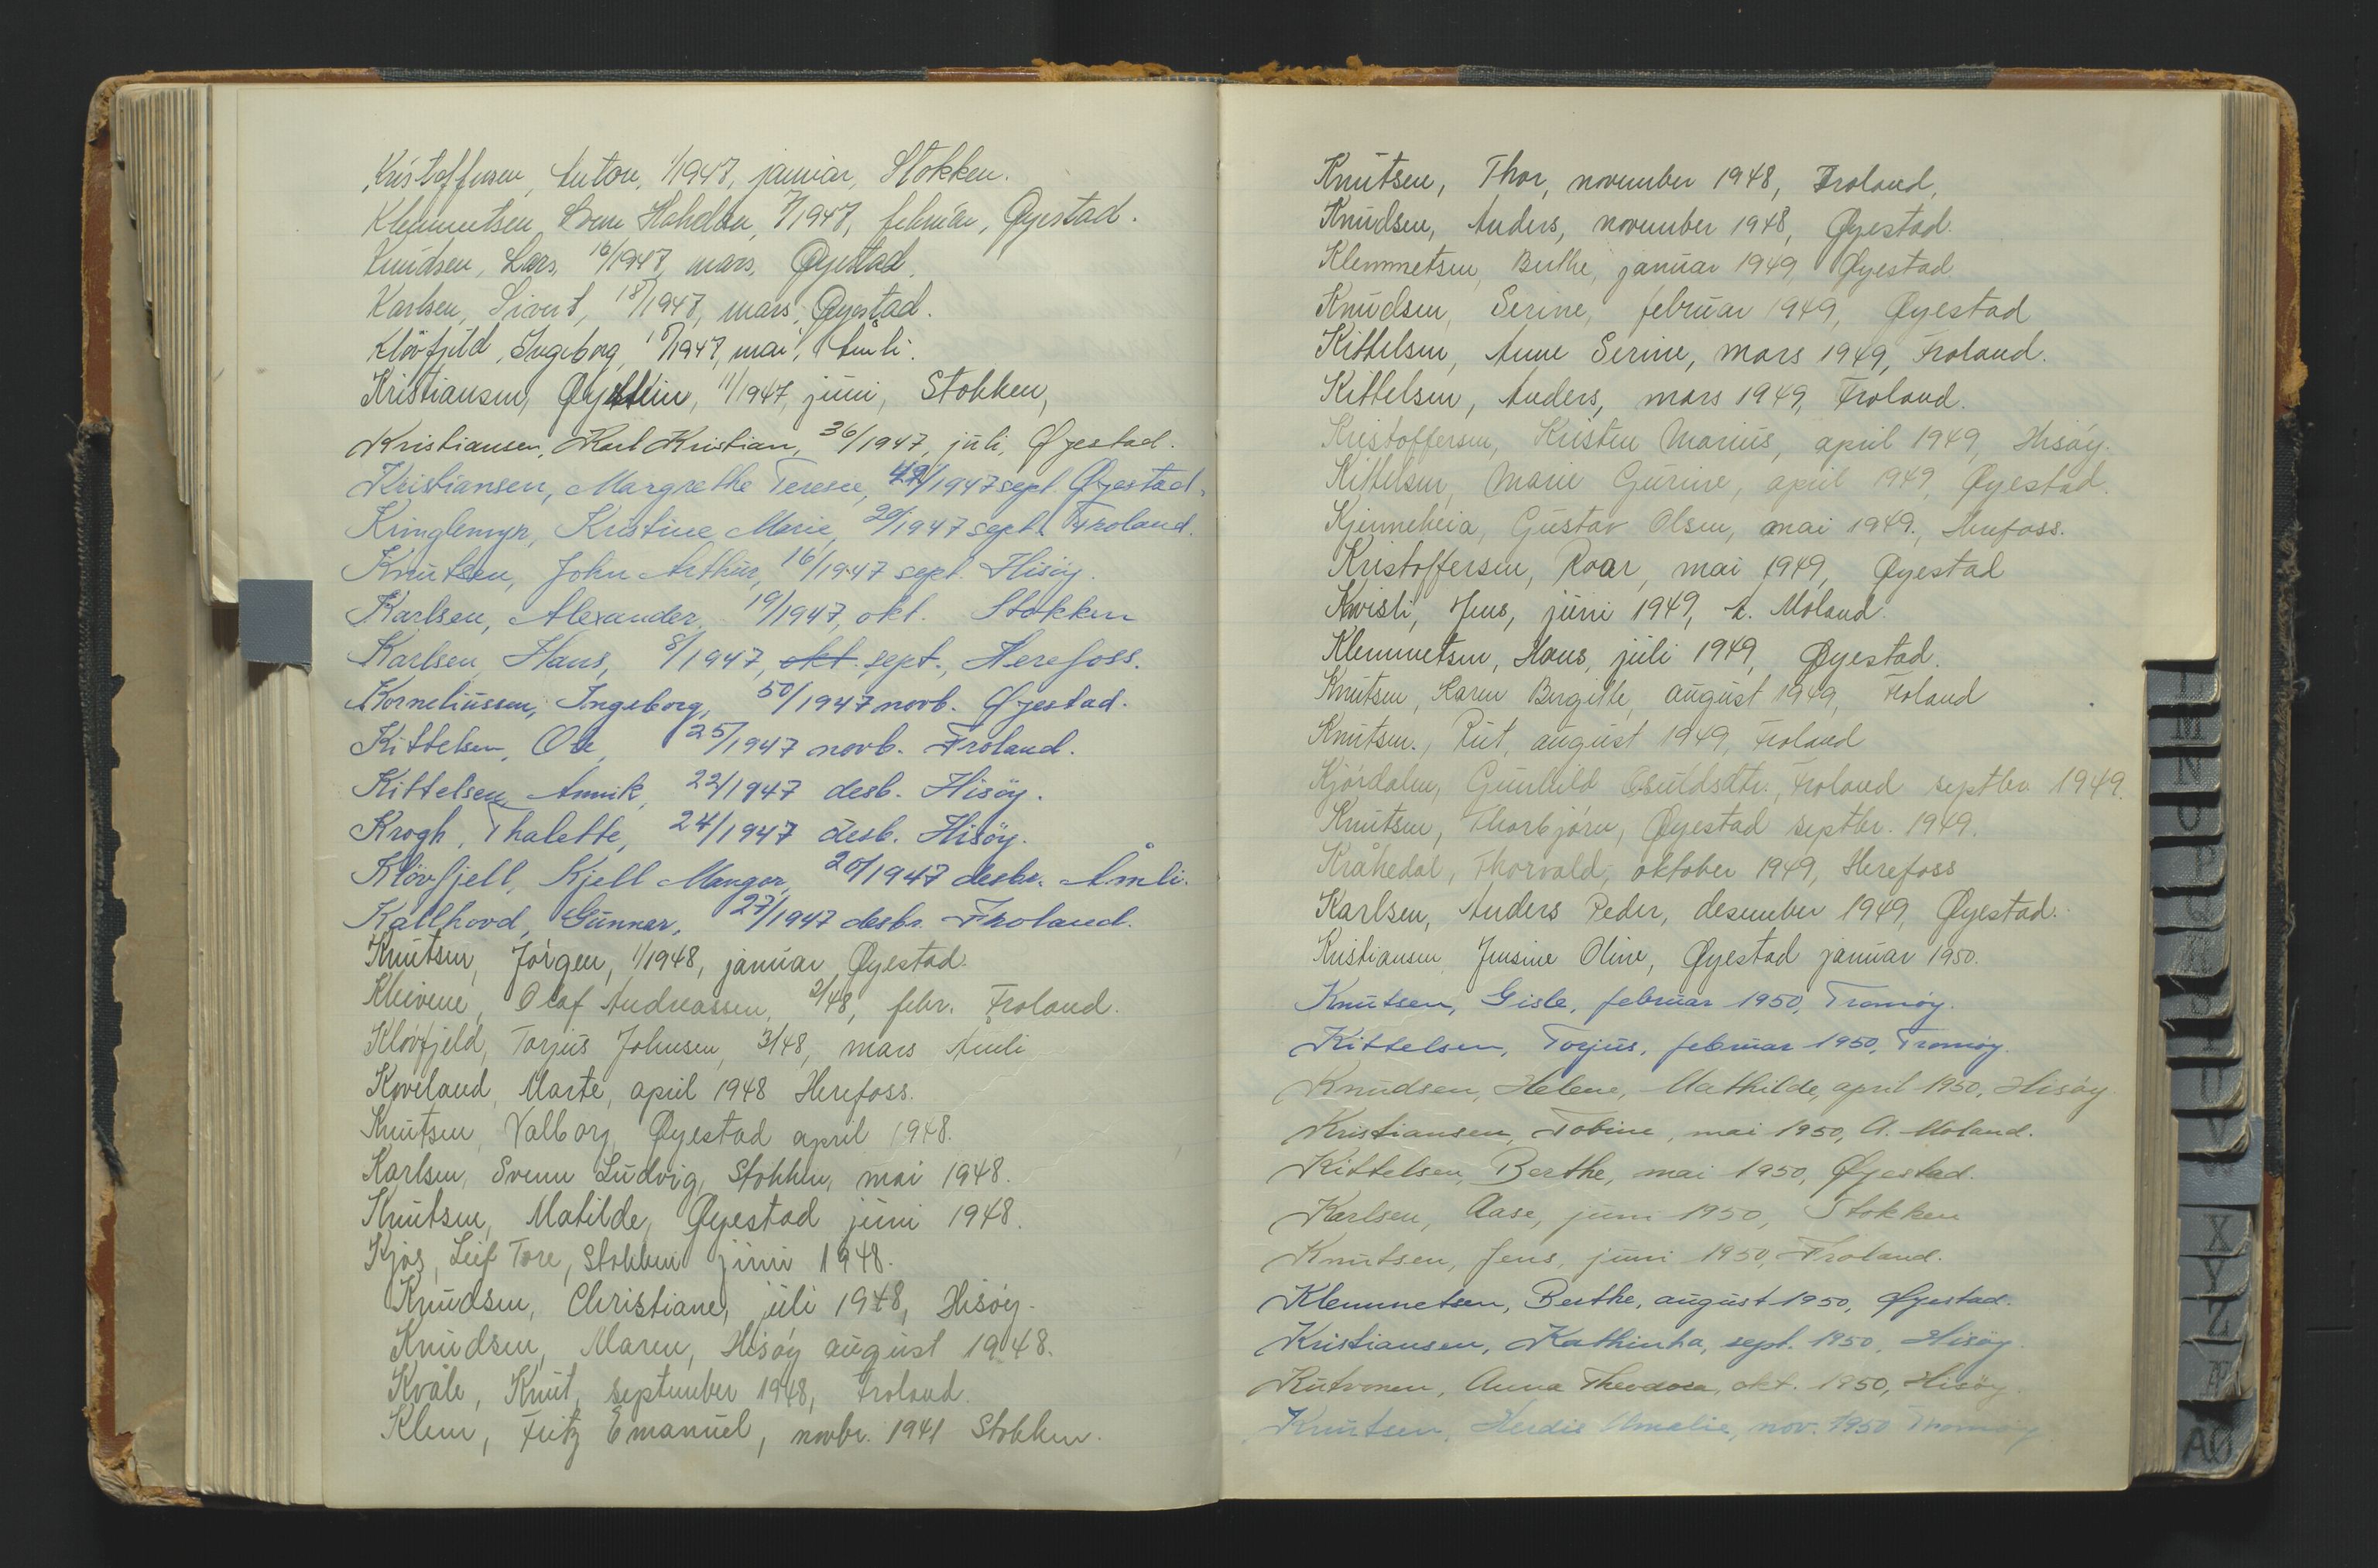 Kristoffersen, Anton, 1/1947, januar, Stokken.
Klemmetsen, 7/1947, februar, Øyestad.
Knudsen, Lars, 16/1947, mars, Øyestad.
Karlsen, Sivert, 18/1947, mars, Øyestad.
Kløvfjeld, Ingeborg, /1947, mai, Åmli.
Kristiansen, Øystein, 11/1947, juni, Stokken,
Kristiansen, Karl Kristian, 36/1947, juli, Øyestad.
Kristiansen, Margrethe Terese, 49/1947 sept. Øyestad.
Kringlemyr, Kristine Marie, 20/1947 sept. Froland.
Knutsen, John Arthur, 16/1947 sept. Hisöy.
Karlsen, Alexander, 19/1947, okt. Stokken
Karlsen, Hans, 8/1947, okt. sept., Herefoss.
Korneliussen, Ingeborg, 50/1947 novb. Øyestad.
Kittelsen, Ole, 25/1947 novb. Froland.
Kittelsen, Annik, 22/1947 desb. Hisöy.
Krogh, Thalette, 24/1947 desb. Hisöy.
Klövfjell, Kjell Mangor, 20/1947 desbr. Åmli.
Kallhovd, Gunnar, 27/1947 desbr. Froland.
Knutsen, Jörgen, 1/1948, januar, Øyestad.
Kleivene, Olaf Andreassen, 2/48, febr. Froland.
Klövfjeld, Torjus Johnsen, 3/48, mars Åmli
Koveland, Marte, april 1948 Herefoss.
Knutsen, Valborg, Øyestad april 1948.
Karlsen, Svenn Ludvig, Stokken, mai 1948.
Knutsen, Matilde, Øyestad juni 1948.
Kjos, Leif Tore, Stokken juni 1948.
Knudsen, Christiane, juli 1948, Hisöy.
Knudsen, Maren, Hisöy august 1948.
Kvåle, Knut, september 1948, Froland.
Klem, Fritz Emanuel, novbr. 1941 Stokken.
Knutsen, Thor, november 1948, Froland,
Knudsen, Anders, november 1948, Øyestad.
Klemmetsen, Berthe, januar 1949, Øyestad
Knudsen, Serine, februar 1949, Øyestad
Kittelsen, Anne Serine, mars 1949, Froland.
Kittelsen, Anders, mars 1949, Froland.
Kristoffersen, Kristen Marius, april 1949, Hisöy.
Kittelsen, Marie Gurine, april 1949, Øyestad.
Kjenneheia, Gustav Olsen, mai 1949., Herefoss.
Kristoffersen, Roar, mai 1949, Øyestad
Kvisli, Jens, juni 1949, A. Moland.
Klemmetsen, Hans, juli 1949, Øyestad.
Knutsen, Karen Birgitte, august 1949, Froland
Knutsen., Rut, august 1949, Froland
Kjördalen, Gunhild Froland septbr. 1949.
Knutsen, Thorbjörn, Øyestad septbr. 1949.
Kråkedal, Thorvald, oktober 1949, Herefoss
Karlsen, Anders Peder, desember 1949, Øyestad.
Kristiansen, Jensine Oline, Øyestad januar 1950.
Knutsen, Gisle, februar 1950, Tromöy.
Kittelsen, Torjus, februar 1950, Tromöy.
Knudsen, Helene, Mathilde, april 1950, Hisöy
Kristiansen, Tobine, mai 1950, A. Moland.
Kittelsen, Berthe, mai 1950, Øyestad.
Karlsen, Aase, juni 1950, Stokken
Knutsen, Jens, juni 1950, Froland.
Klemmetsen, Berthe, august 1950, Øyestad.
Kristiansen, Kathinka, sept. 1950, Hisöy.
Anna Theodora, okt. 1950, Hisöy.
Knutsen, Herdis Amalie, nov. 1950 Tromöy
M
N
O
P
U
V
X
Y
Z
Æ
ÅÖ